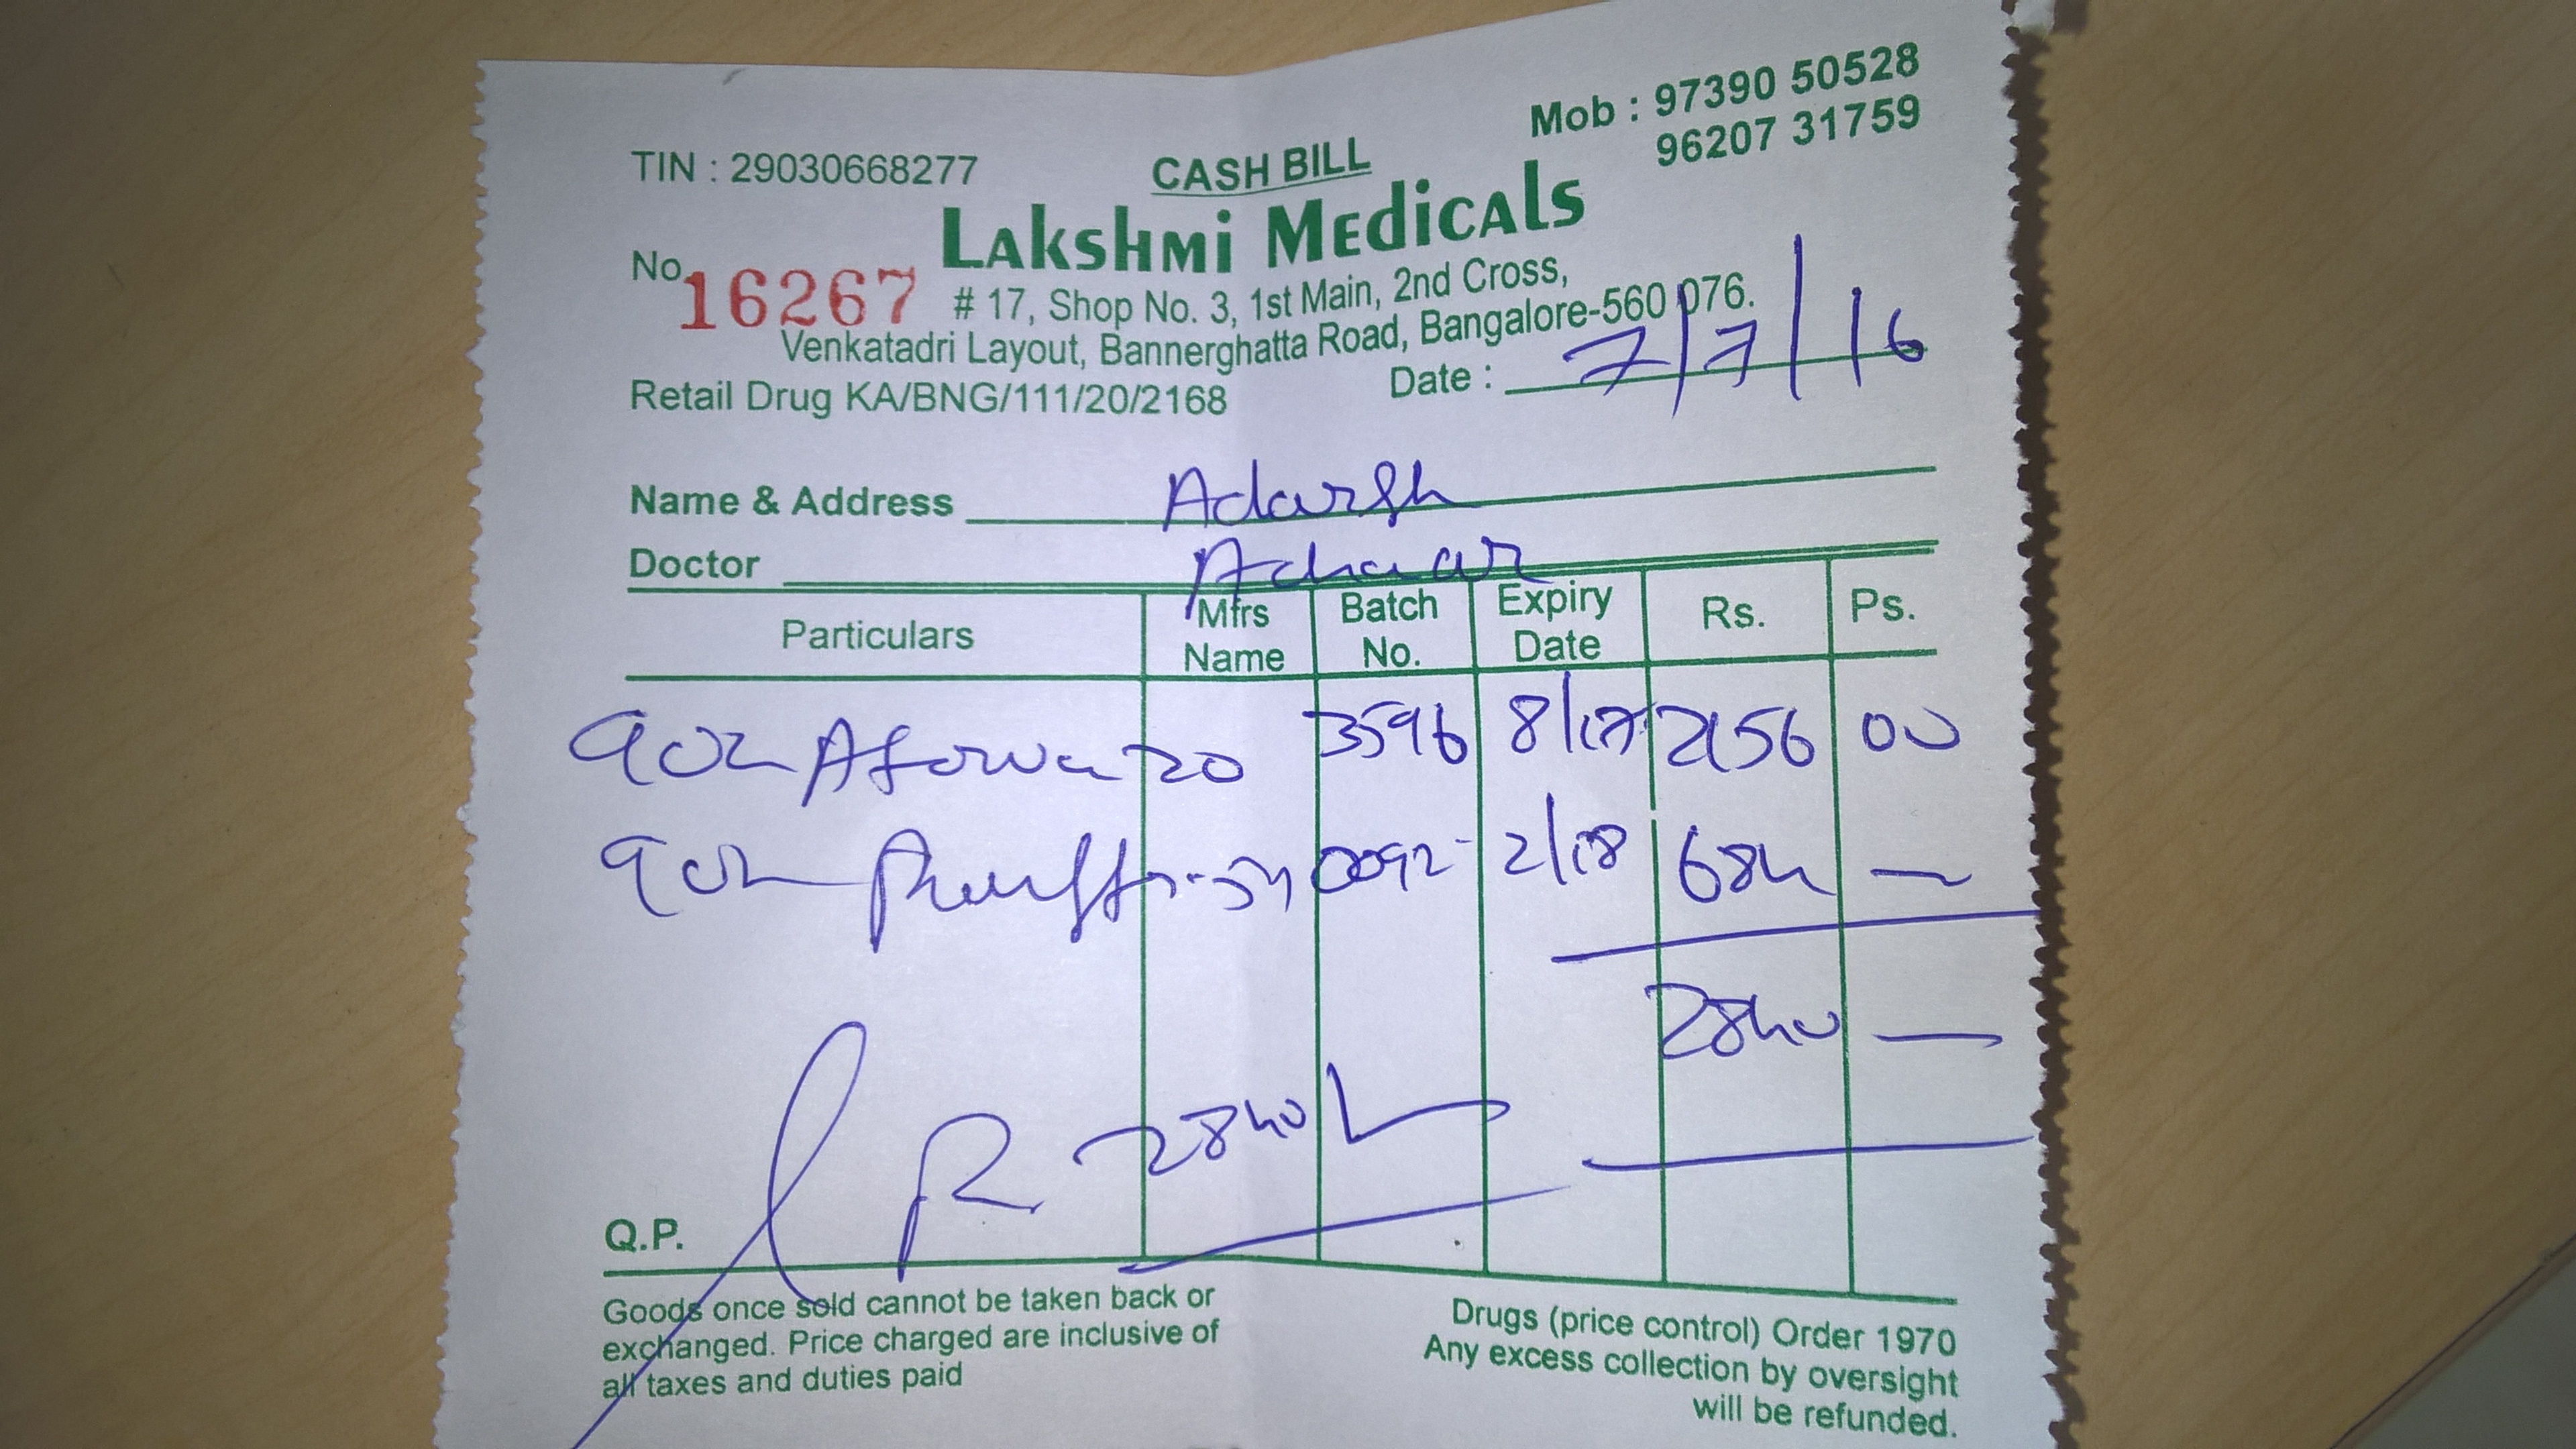 Mob : 97390 50528
96207 31759
TIN : 29030668277
CASH BILL
Lakshmi Medicals
No. 16267
# 17, Shop No. 3, 1st Main, 2nd Cross,
Venkatadri Layout, Bannerghatta Road, Bangalore-560 076.
Retail Drug KA/BNG/111/20/2168
Date : 7/7/16
Name & Address Adarsh
Doctor
Particulars Mfrs Name Batch No. Expiry Date Rs. Ps.
20 3596 8/17 2156 00
0092 2/18 684 —
2840 —
2840
Q.P.
Goods once sold cannot be taken back or
exchanged. Price charged are inclusive of
all taxes and duties paid
Drugs (price control) Order 1970
Any excess collection by oversight
will be refunded.